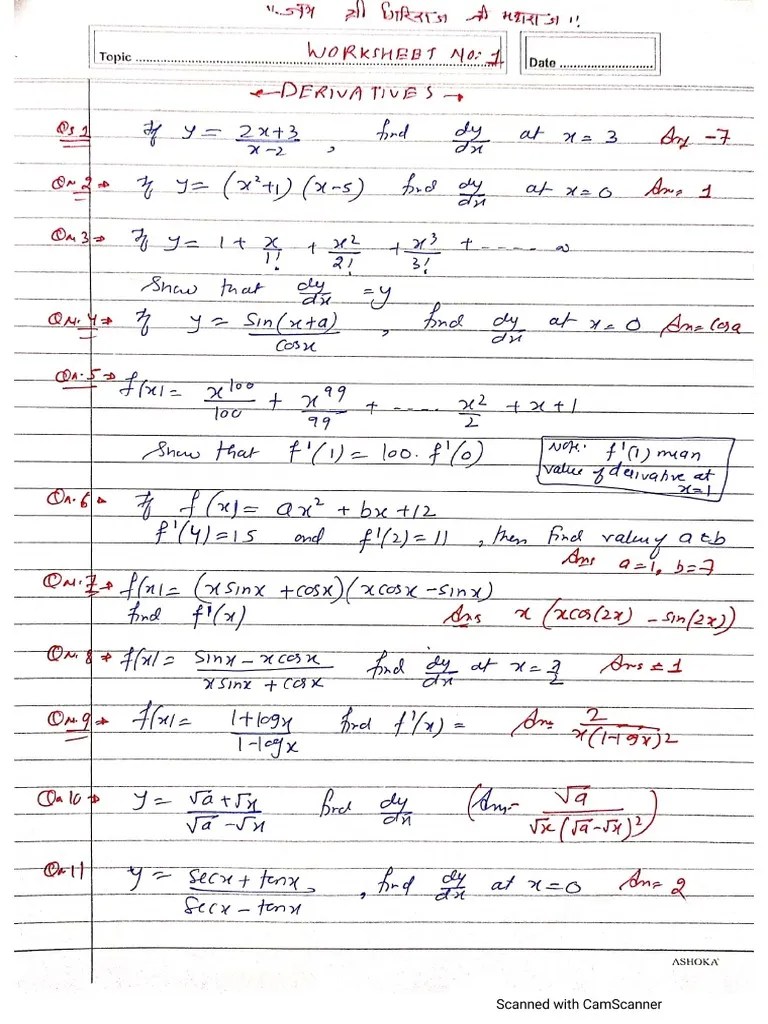 "जय श्री गिरिराज जी महाराज"
Topic ........ WORKSHEET No: 1
Date ........
← DERIVATIVES →
Qs 1 If y = (2x+3)/(x-2), find dy/dx at x = 3 Ans -7
Qn. 2 → If y = (x²+1) (x-5) find dy/dx at x = 0 Ans = 1
Qn 3 → If y = 1 + x/1! + x²/2! + x³/3! + ----- ∞
Show that dy/dx = y
Qn. 4 → If y = Sin(x+a)/cosx, find dy/dx at x = 0 Ans = Cosa
Qn. 5 → f(x) = x¹⁰⁰/100 + x⁹⁹/99 + ---- x²/2 + x + 1
Show that f'(1) = 100. f'(0)
Note: f'(1) mean
value of derivative at
x=1
Qn. 6 → If f(x) = ax² + bx + 12
f'(4) = 15 and f'(2) = 11, then find value of a & b
Ans a = 1, b = 7
Qn. 7 → f(x) = (x sinx + cosx) (x cosx - sinx)
find f'(x) Ans x (x cos(2x) - sin(2x))
Qn. 8 → f(x) = (sinx - x cosx)/(x sinx + cosx) find dy/dx at x = π/2 Ans = 1
Qn. 9 → f(x) = (1 + logx)/(1 - logx) find f'(x) = Ans = 2/(x(1-logx)²)
Qn 10 → y = (√a + √x)/(√a - √x) find dy/dx (Ans - √a/(√x (√a - √x)²))
Qn. 11 y = (secx + tanx)/(secx - tanx), find dy/dx at x = 0 Ans = 2
ASHOKA
Scanned with CamScanner